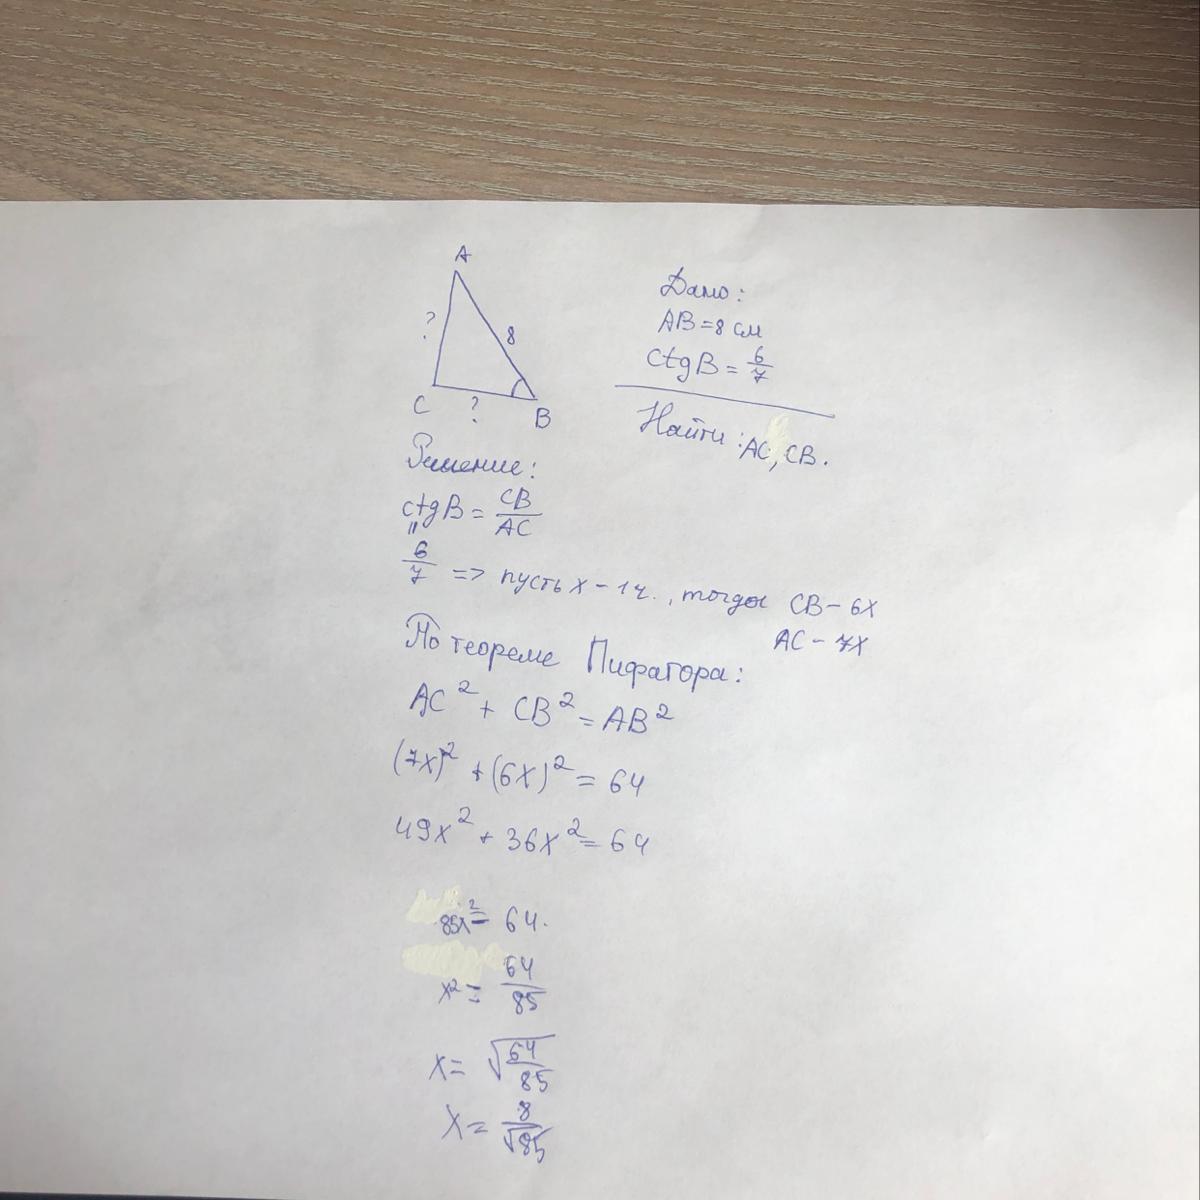 A
?
8
C
?
B
Дано:
AB=8 см
ctgB= 6/7
Найти: AC, CB.
Решение:
ctgB = CB/AC
"
6/7 => пусть x - 1 ч., тогда CB - 6x
AC - 7x
По теореме Пифагора:
AC² + CB² = AB²
(7x)² + (6x)² = 64
49x² + 36x² = 64
85x² = 64.
x² = 64/85
x = √64/85
x = 8/√85